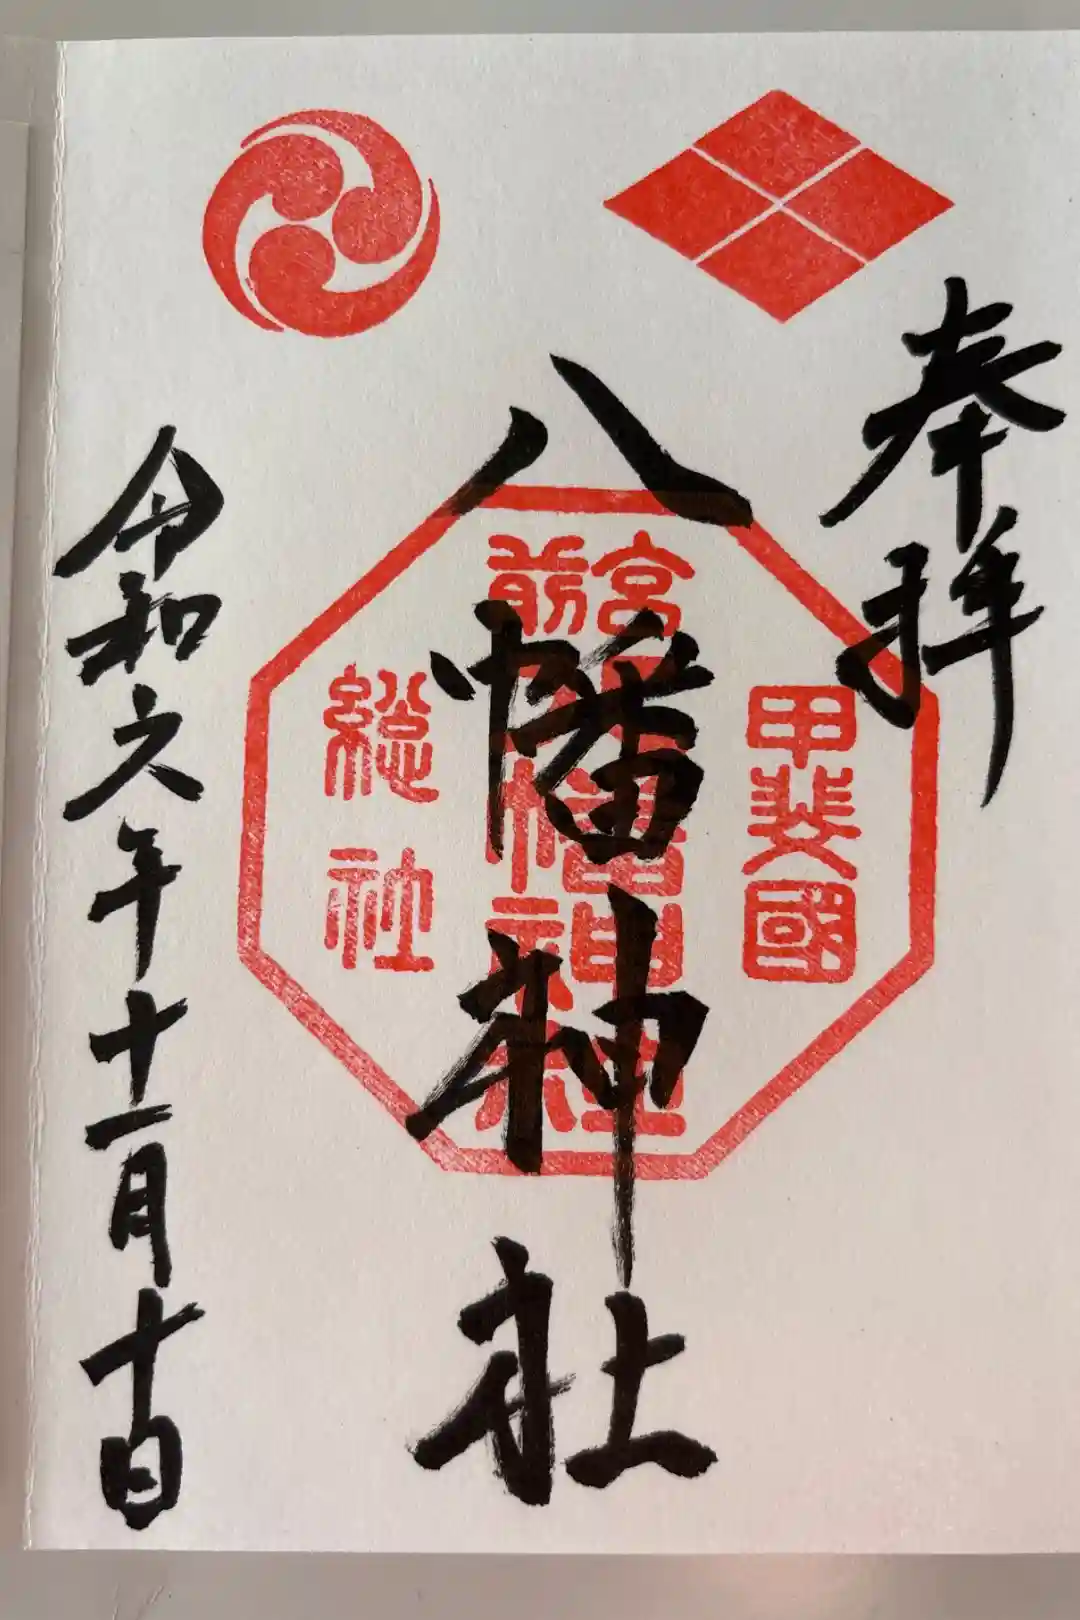 奉拝
八幡神社
甲斐國
宮前
八幡神社
総社
令和六年十一月十日